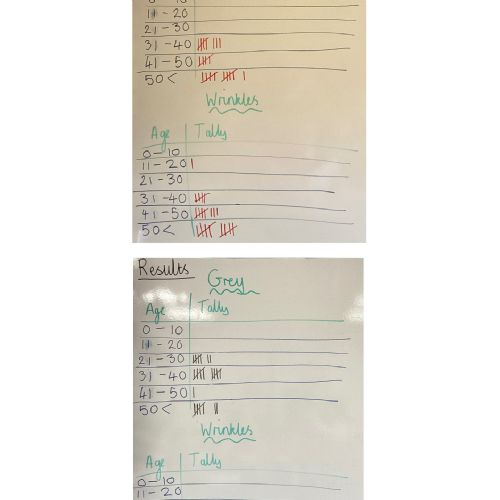 11-20
21-30
31-40 卌 III
41-50 卌
50< 卌 卌 I
Wrinkles
Age Tally
0-10
11-20 I
21-30
31-40 卌
41-50 卌 III
50< 卌 卌
Results
Grey
Age Tally
0-10
11-20
21-30 卌 II
31-40 卌 卌
41-50 I
50< 卌 II
Wrinkles
Age Tally
0-10
11-20